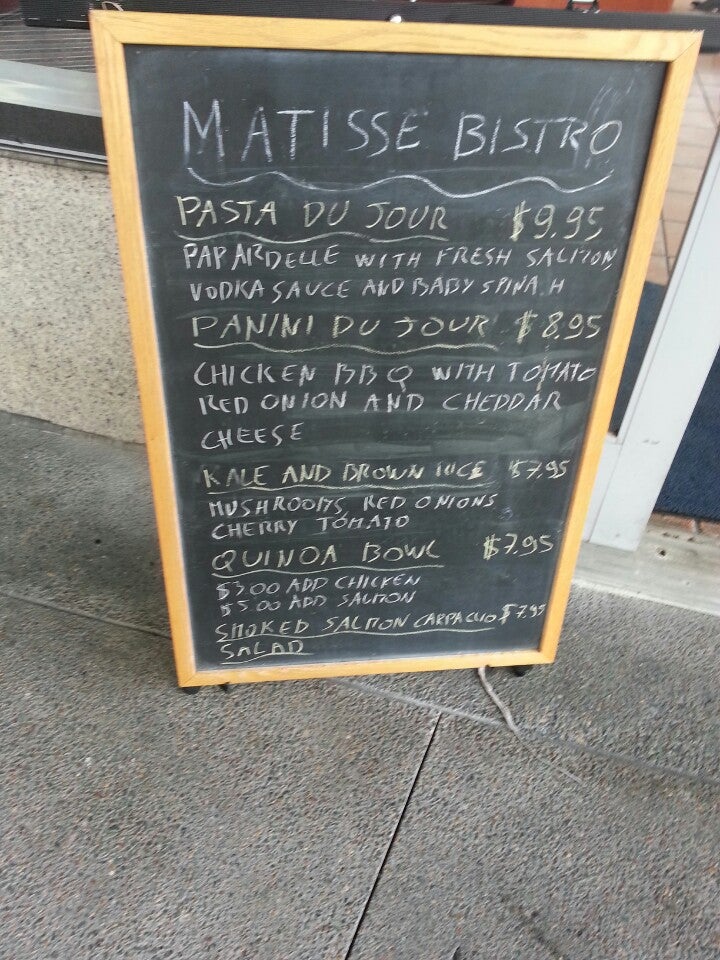 MATISSE BISTRO
PASTA DU JOUR $9.95
PAPARDELLE WITH FRESH SALMON,
VODKA SAUCE AND BABY SPINA H
PANINI DU JOUR $8.95
CHICKEN BBQ WITH TOMATO
RED ONION AND CHEDDAR
CHEESE
KALE AND BROWN RICE $7.95
MUSHROOMS, RED ONIONS
CHERRY TOMATO
QUINOA BOWL $7.95
$3.00 ADD CHICKEN
$5.00 ADD SALMON
SMOKED SALMON CARPACCIO $7.95
SALAD